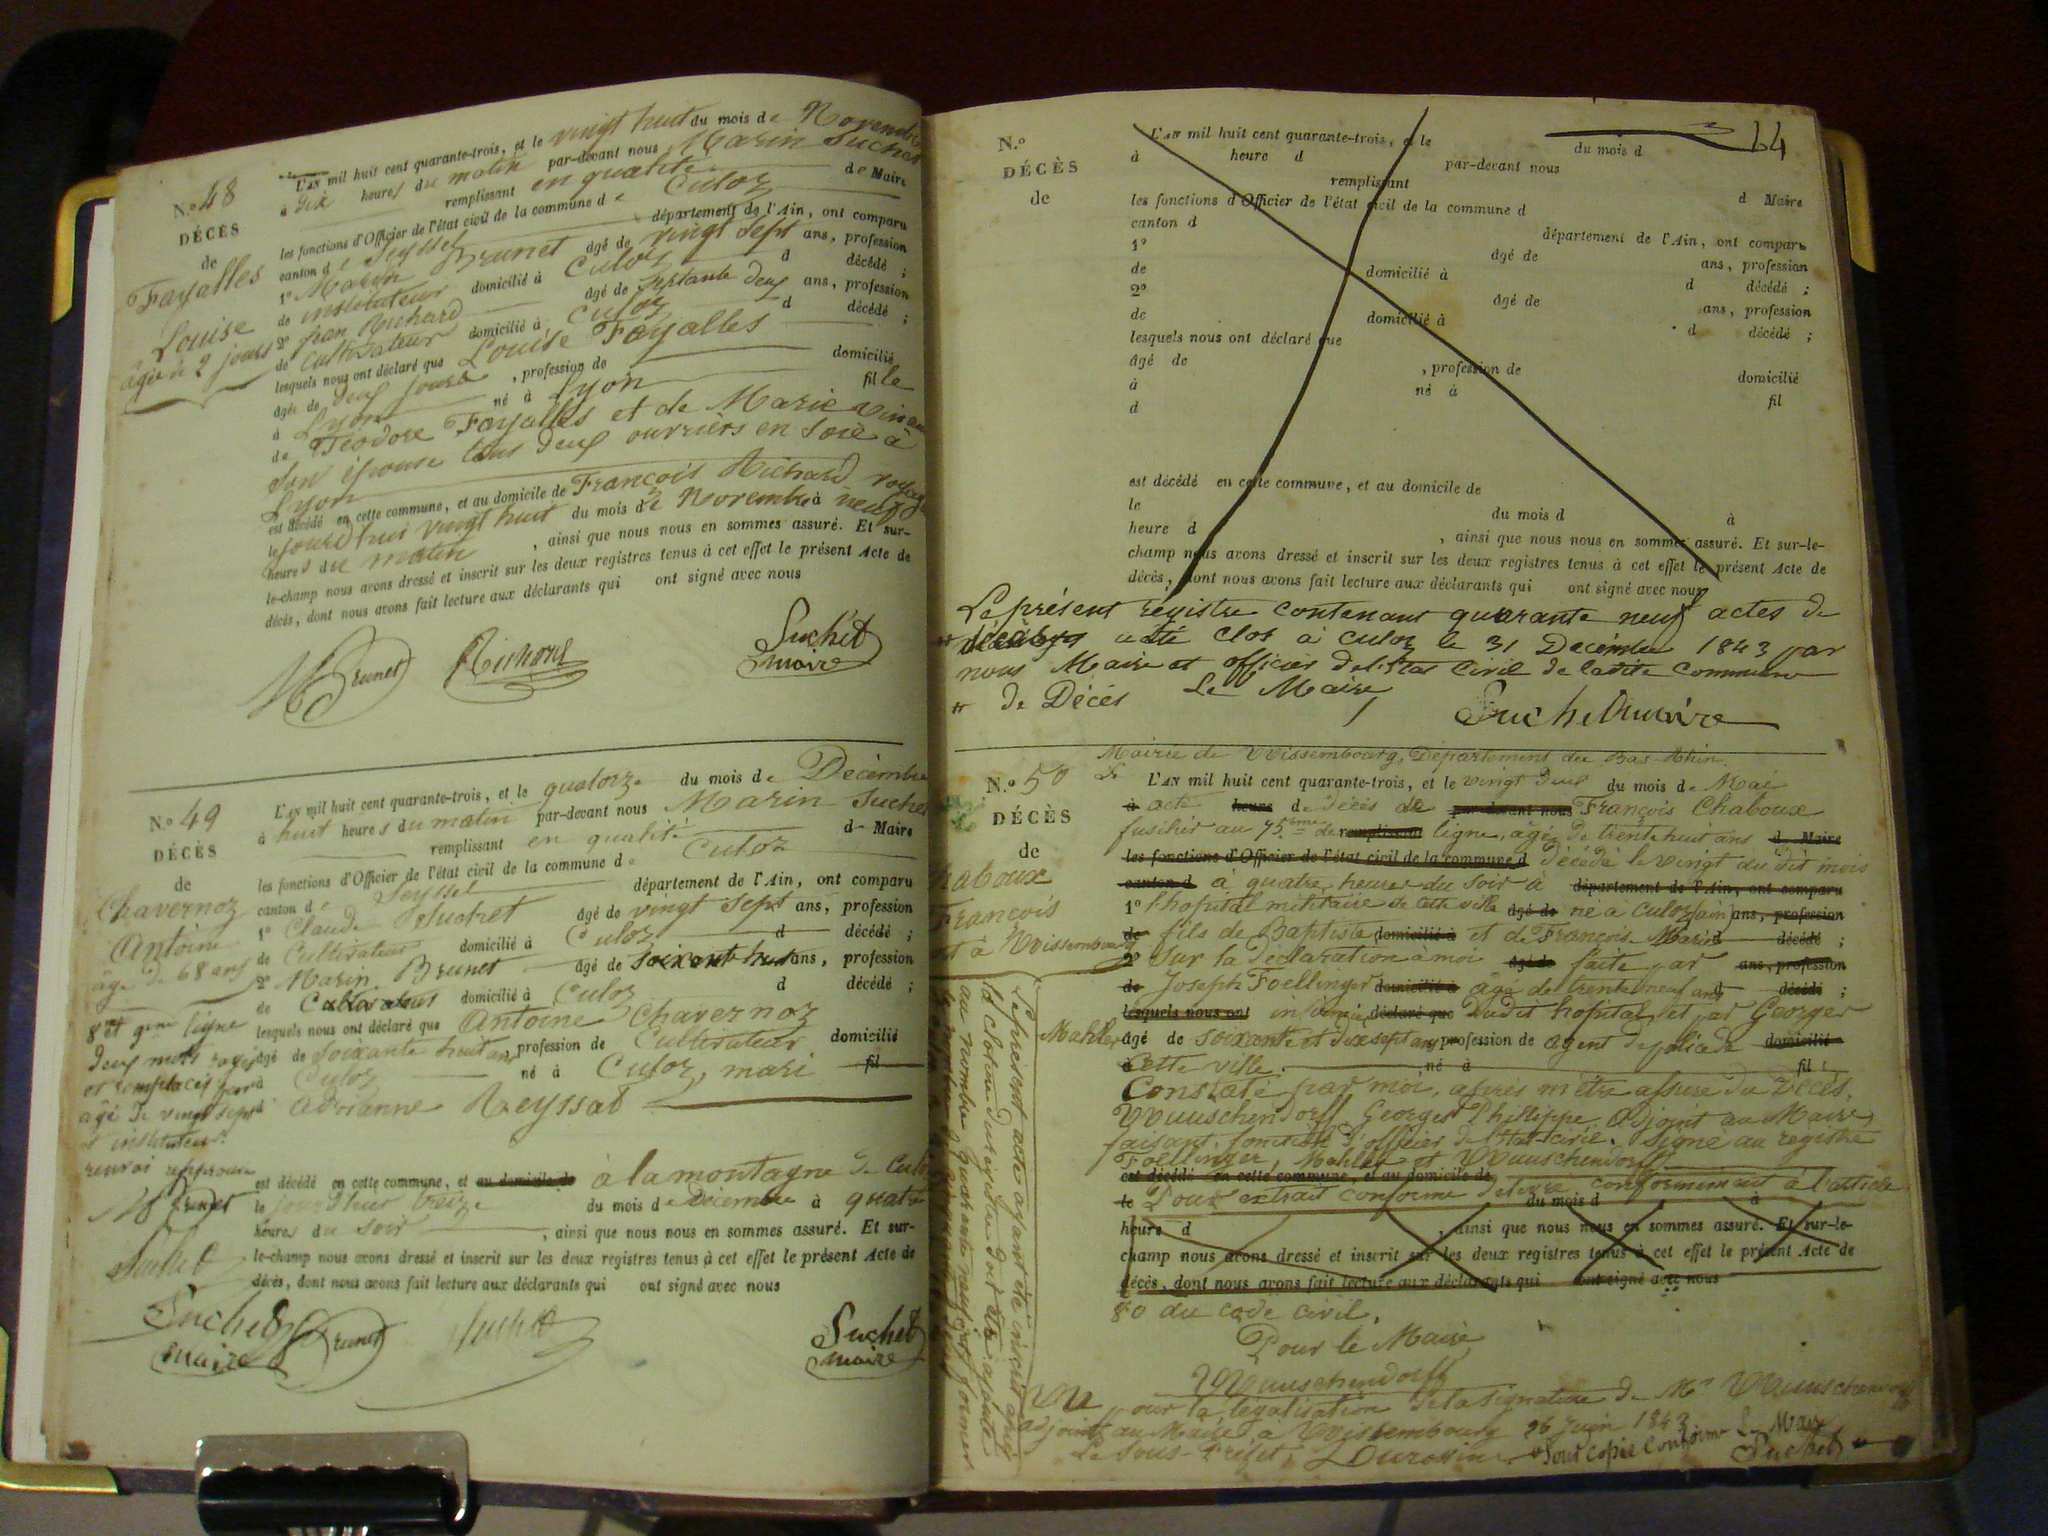 N.º 48
DÉCÈS
de
Fayalles
Louise
âgée de 2 jours
L'AN mil huit cent quarante-trois, et le vingt huit du mois de Novembre
à dix heures du matin par-devant nous Marin Suchet
remplissant en qualité de Maire
les fonctions d'Officier de l'état civil de la commune de Culoz
canton de Seyssel département de l'Ain, ont comparu
1º Marin Brunet âgé de vingt sept ans, profession
de instituteur domicilié à Culoz d décédé ;
2º Jean Richard âgé de septante deux ans, profession
de Cultivateur domicilié à Culoz d décédé ;
lesquels nous ont déclaré que Louise Fayalles
âgée de deux jours , profession de domicilié
à Lyon né à Lyon fille
de Téodore Fayalles et de Marie
son épouse tous deux ouvriers en soie à
Lyon
est décédé en cette commune, et au domicile de François Richard
le jourd'hui vingt huit du mois de Novembre à neuf
heures du matin , ainsi que nous nous en sommes assuré. Et sur-
le-champ nous avons dressé et inscrit sur les deux registres tenus à cet effet le présent Acte de
décès, dont nous avons fait lecture aux déclarants qui ont signé avec nous
M Brunet Richard Suchet
maire
N.º 49
DÉCÈS
de
Chavernoz
Antoine
âgé de 68 ans
8e et 9eme ligne
deux mots rayés
et remplacés par
âgé de vingt sept
et instituteur
renvoi approuvé
M Brunet
Suchet
Suchet
maire
L'AN mil huit cent quarante-trois, et le quatorze du mois de Décembre
à huit heures du matin par-devant nous Marin Suchet
remplissant en qualité de Maire
les fonctions d'Officier de l'état civil de la commune de Culoz
canton de Seyssel département de l'Ain, ont comparu
1º Claude Suchet âgé de vingt sept ans, profession
de Cultivateur domicilié à Culoz d décédé ;
2º Marin Brunet âgé de soixante huit ans, profession
de Cultivateur domicilié à Culoz d décédé ;
lesquels nous ont déclaré que Antoine Chavernoz
âgé de soixante huit ans profession de Cultivateur domicilié
à Culoz né à Culoz, mari fil
d Adrianne Reyssat
est décédé en cette commune, et au domicile de à la montagne de Culoz
le jourd'hier treize du mois de Décembre à quatre
heures du soir , ainsi que nous nous en sommes assuré. Et sur-
le-champ nous avons dressé et inscrit sur les deux registres tenus à cet effet le présent Acte de
décès, dont nous avons fait lecture aux déclarants qui ont signé avec nous
Brunet Suchet Suchet
maire
64
N.º
DÉCÈS
de
L'AN mil huit cent quarante-trois, et le du mois d
à heure d par-devant nous
remplissant d Maire
les fonctions d'Officier de l'état civil de la commune d
canton d département de l'Ain, ont comparu
1º âgé de ans, profession
de domicilié à d décédé ;
2º âgé de ans, profession
de domicilié à d décédé ;
lesquels nous ont déclaré que
âgé de , profession de domicilié
à né à fil
d
est décédé en cette commune, et au domicile de
le du mois d à
heure d , ainsi que nous nous en sommes assuré. Et sur-le-
champ nous avons dressé et inscrit sur les deux registres tenus à cet effet le présent Acte de
décès, dont nous avons fait lecture aux déclarants qui ont signé avec nous
Le présent registre contenant quarante neuf actes de
a été clos à Culoz le 31 Décembre 1843 par
nous Maire et officier de l'Etat Civil de ladite Commune
de Décès Le Maire
Suchet maire
Mairie de Wissembourg, Département du Bas-Rhin.
N.º 50
DÉCÈS
de
Chaboux
François
à Wissembourg
L'AN mil huit cent quarante-trois, et le vingt deux du mois de Mai
à acte heure de décès de par-devant nous François Chaboux
fusilier au 75ème de remplissant ligne, âgé de trente huit ans d Maire
les fonctions d'Officier de l'état civil de la commune d décédé le vingt du dit mois
canton d à quatre heures du soir à département de l'Ain, ont comparu
1º l'hopital militaire de cette ville âgé de né à Culoz (ain) ans, profession
de fils de Baptiste domicilié à et de François Marie d décédé ;
2º Sur la déclaration à moi âgé de faite par ans, profession
de Joseph Foellinger domicilié à âgé de trente neuf ans d décédé ;
lesquels nous ont infirmier déclaré que dudit hopital, et par Georges
Mahler âgé de soixante et dix sept ans profession de agent de police de domicilié
à Cette ville. né à fil
Constaté par moi, après m'être assuré du Décès,
Wunschendorff Georges Philippe Adjoint au Maire
faisant fonctions d'officier de l'Etat civil. Signé au registre
Foellinger, Mahler et Wunschendorff
est décédé en cette commune, et au domicile de
le Pour extrait conforme délivré conformément à l'article
du mois d à
heure d , ainsi que nous nous en sommes assuré. Et sur-le-
champ nous avons dressé et inscrit sur les deux registres tenus à cet effet le présent Acte de
décès, dont nous avons fait lecture aux déclarants qui ont signé avec nous
80 du code civil.
Pour le Maire
Wunschendorff
Vu pour la légalisation de la signature de Mr Wunschendorff
adjoint au Maire à Wissembourg 26 Juin 1843
Le Sous-Préfet, Pour Copie Conforme Le Maire
Suchet
Le présent acte ayant été inscrit après
la cloture du registre doit être ajouté
au nombre quarante neuf et former